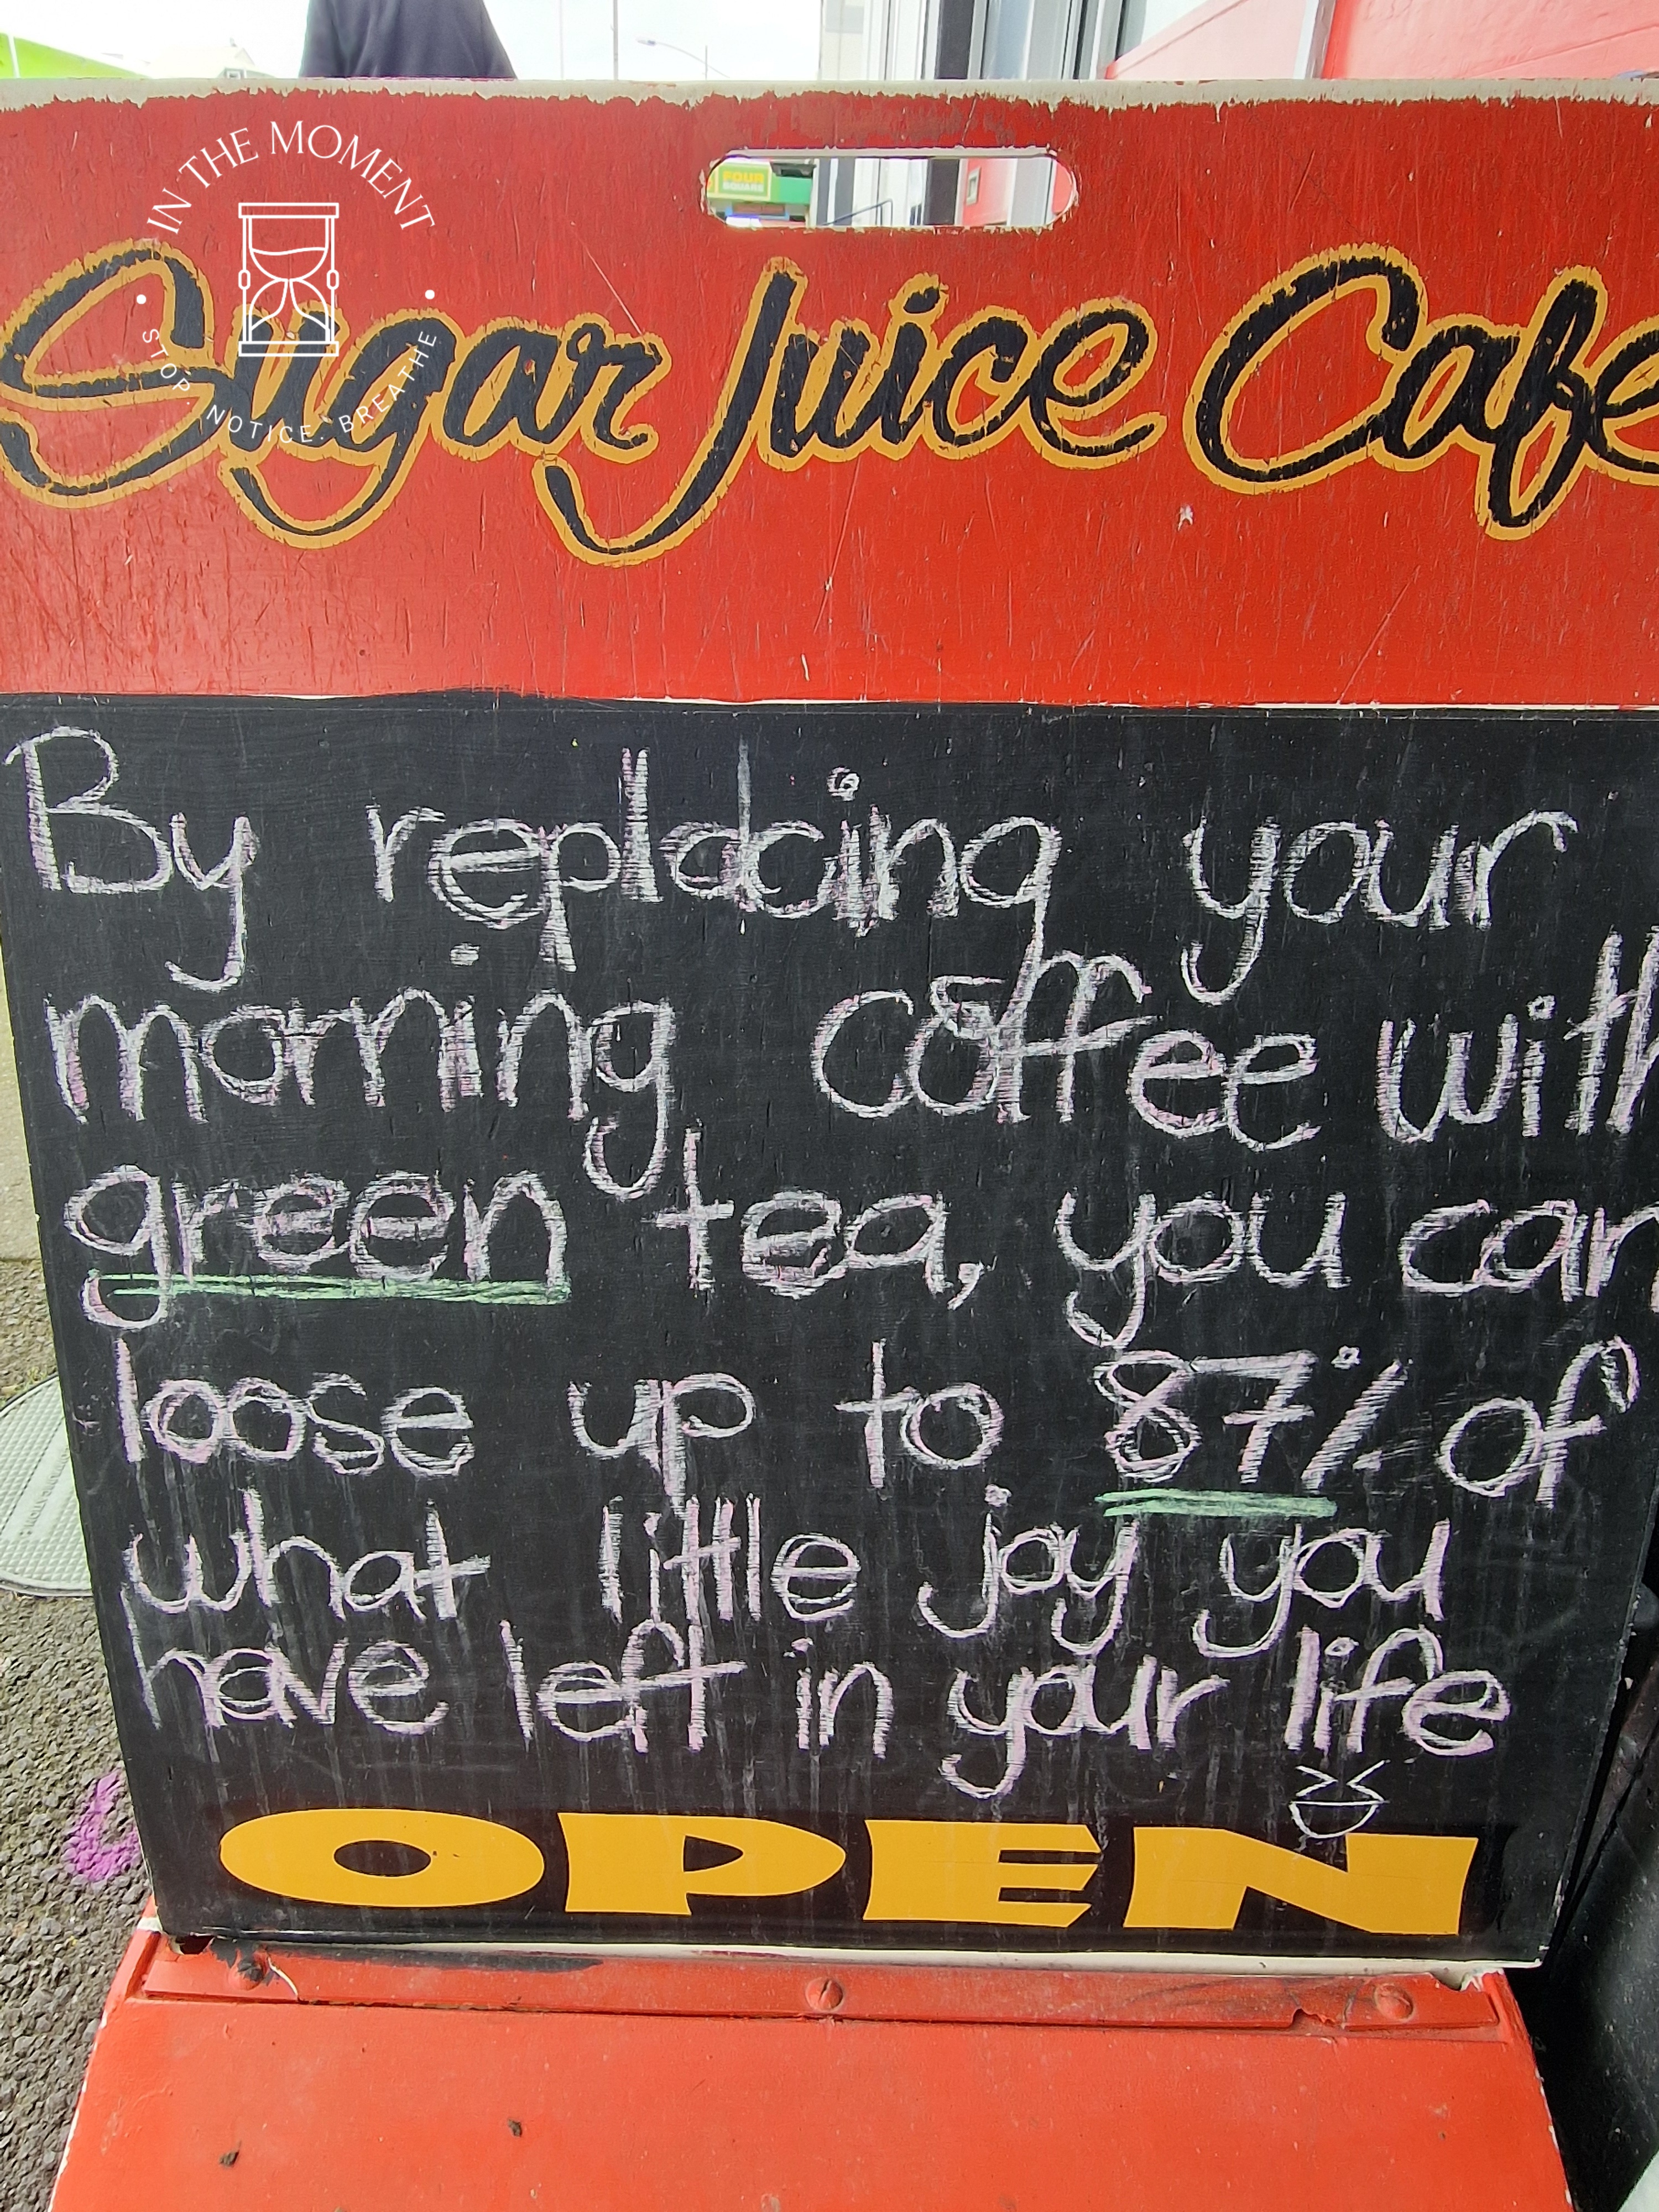 IN THE MOMENT
STOP. NOTICE. BREATHE
FOUR
SQUARE
Sugar Juice Cafe
By replacing your
morning coffee with
green tea, you can
loose up to 87% of
what little joy you
have left in your life
OPEN